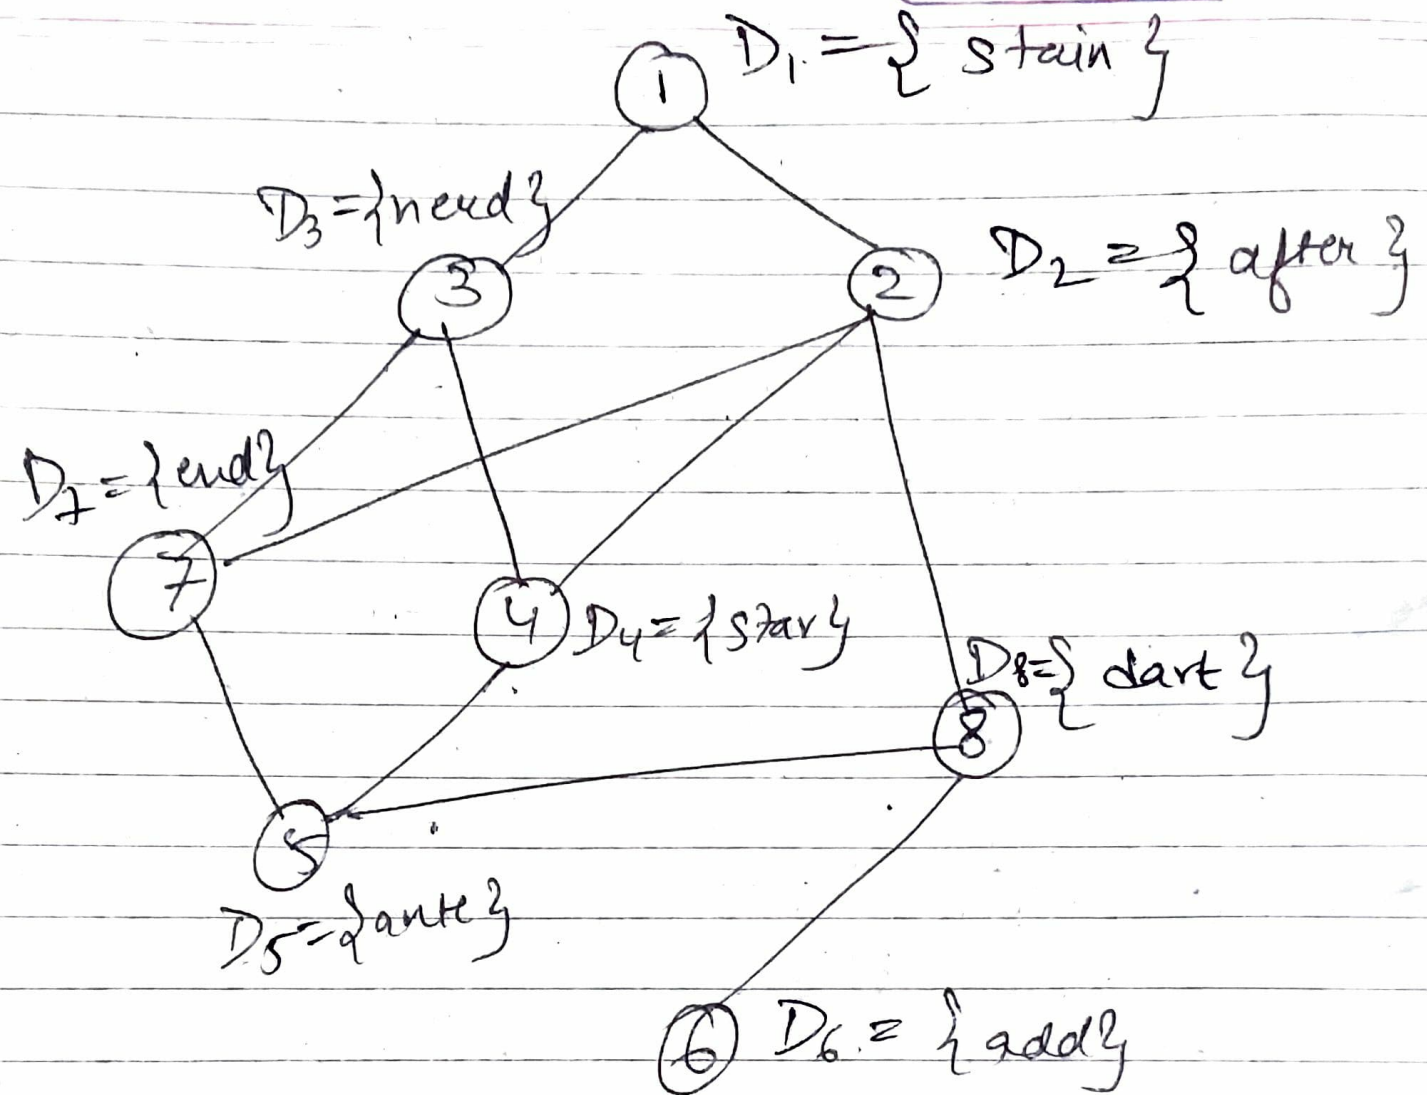 1 D1 = { stain }
D3 = {nerd}
3
2 D2 = { after }
D7 = {end}
7
4 D4 = {star}
D8 = { dart }
8
5
D5 = {ante}
6 D6 = {add}